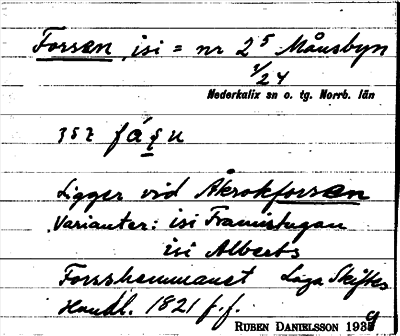 Forsen, isi = nr 2⁵ Månsbyn
1/24
Nederkalix sn o. tg. Norrb. län
357 fáșn
Ligger vid Åkrokforsen
Varianter: isi Framistugan
isi Alberts
Forsshemmanet Laga Skiftes
Handl. 1821 f.f.
RUBEN DANIELSSON 1939